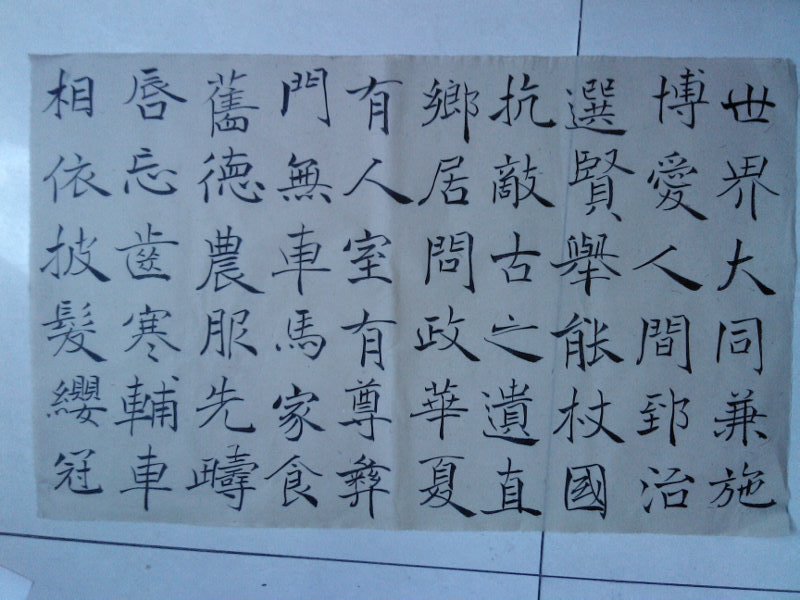 世界大同兼施
博愛人間郅治
選賢舉能杖國
抗敵古之遺直
鄉居問政華夏
有人室有尊彝
門無車馬家食
舊德農服先疇
唇忘齒寒輔車
相依披髮纓冠